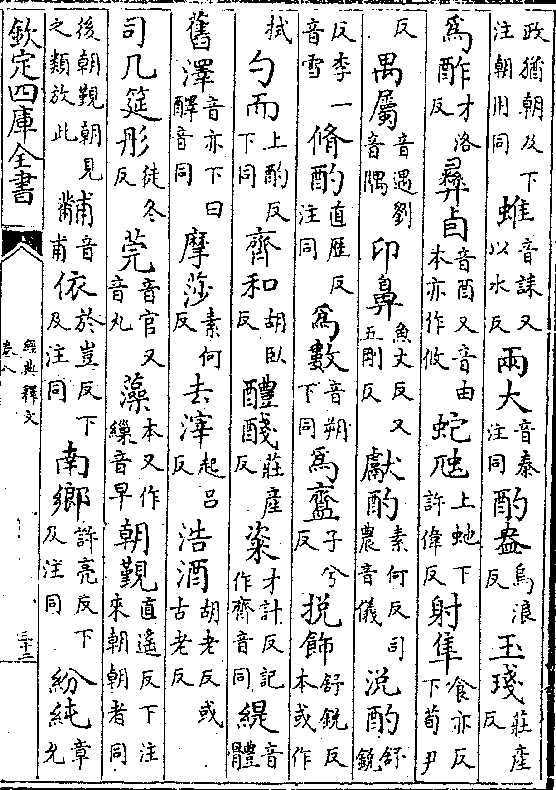 政猶朝及下注朝用同蜼音誄又以水反兩大音泰注同酌盎烏浪反玉琖莊產反
為酢才洛反彝卣音酉又音由本亦作攸蛇虺上虵下許偉反射隼食亦反下荀尹
反禺屬音遇劉音隅卬鼻魚丈反又五剛反獻酌素何反司農音儀涗酌舒銳
反李一音雪脩酌直歷反注同為數音朔下同為齍子兮反挩飾舒銳反本或作
拭勺而上酌反下同齊和胡臥反醴醆莊產反粢才計反記作齊音同緹音體
舊澤音亦下曰醳音同摩莎素何反去滓起呂反浩酒胡老反或古老反
司几筵彤徒冬反莞音官又音丸藻本又作繅音早朝覲直遙反下注來朝朝者同
後朝覲朝見之類放此黼音甫依於豈反下及注同南鄉許亮反下及注同紛純章允
欽定四庫全書
經典釋文
卷八
三十二